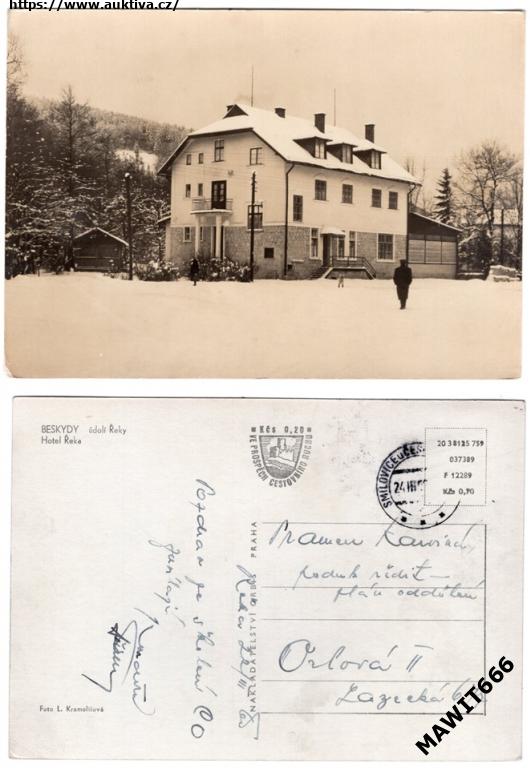 https://www.auktiva.cz/
BESKYDY údolí Řeky
Hotel Řeka
Kčs 0,20
VE PROSPĚCH CESTOVNÍHO RUCHU
SMILOVICE u ČES
24.III
20 3 8125 759
037389
F 12289
Kčs 0,90
Pozdrav ze školení CO
zasílají
NAKLADATELSTVÍ ORBIS PRAHA
Řeka
Pramen Karviná
podnik. ředit –
plán. oddělení
Orlová II
Lazecká
Foto L. Kramolišová
MAWIT666